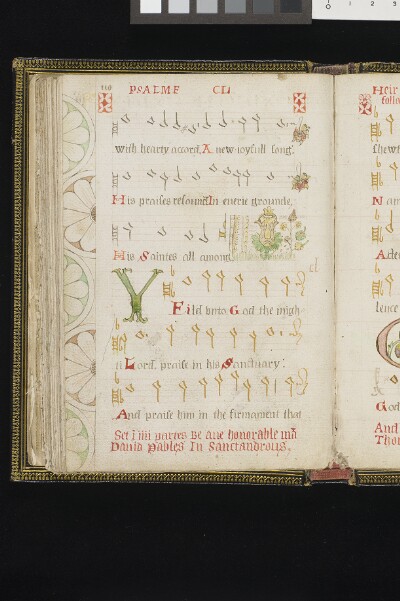 PSALME CL.
with hearty accord, A new ioyfull song.
His praises resound, In euerie grounde,
His Saintes all among
Yeild vnto God the migh-
ti Lord, praise in his Sanctuary:
And praise him in the firmament that
Set I iiii partes Be ane honorable mã
Dauid Pables In Sanctandrous.
Heir
follo
shewt
lence
God
And
Thou